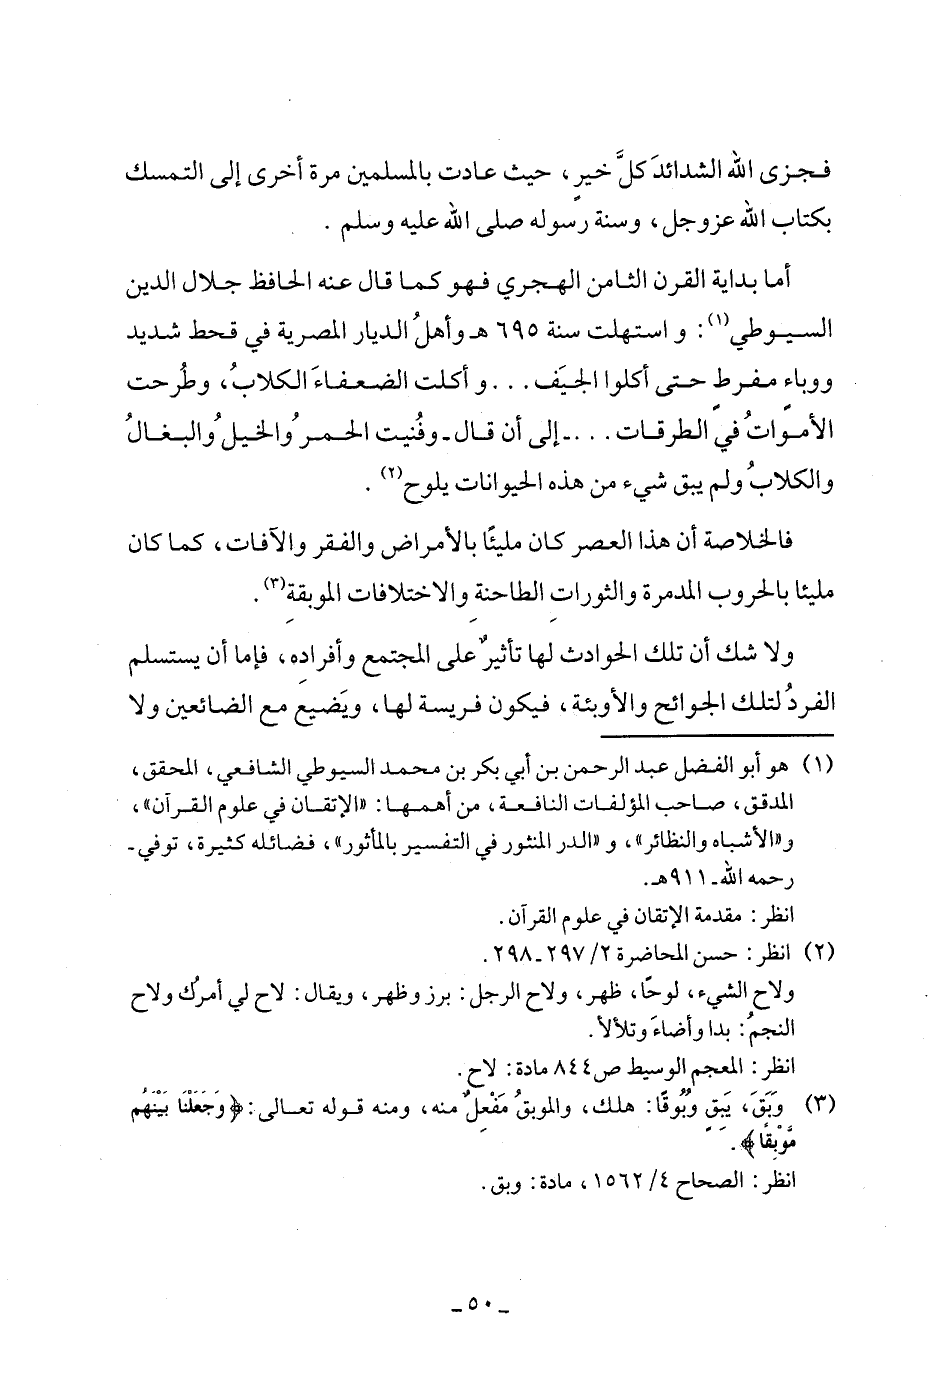 فجزى الله الشدائدَ كلَّ خيرٍ، حيث عادت بالمسلمين مرة أخرى إلى التمسك
بكتاب الله عزوجل، وسنة رسوله صلى الله عليه وسلم .
أما بداية القرن الثامن الهجري فهو كما قال عنه الحافظ جلال الدين
السيوطي(١): و استهلت سنة ٦٩٥ هـ وأهلُ الديار المصرية في قحط شديد
ووباء مفرط حتى أكلوا الجيَف . . . و أكلت الضعفاءَ الكلابُ، وطُرحت
الأمواتُ في الطرقات . . . ـ إلى أن قال ـ وفُنيت الحمرُ والخيلُ والبغالُ
والكلابُ ولم يبق شيء من هذه الحيوانات يلوح(٢) .
فالخلاصة أن هذا العصر كان مليئًا بالأمراض والفقر والآفات، كما كان
مليئا بالحروب المدمرة والثورات الطاحنة والاختلافات الموبقة(٣).
ولا شك أن تلك الحوادث لها تأثيرٌ على المجتمع وأفراده، فإما أن يستسلم
الفردُ لتلك الجوائحِ والأوبئة، فيكون فريسة لها، ويَضيع مع الضائعين ولا
(١) هو أبو الفضل عبد الرحمن بن أبي بكر بن محمد السيوطي الشافعي، المحقق،
المدقق، صاحب المؤلفات النافعة، من أهمها: «الإتقان في علوم القرآن»،
و«الأشباه والنظائر»، و «الدر المنثور في التفسير بالمأثور»، فضائله كثيرة، توفي ـ
رحمه الله ـ ٩١١هـ.
انظر: مقدمة الإتقان في علوم القرآن.
(٢) انظر: حسن المحاضرة ٢/ ٢٩٧ ـ ٢٩٨.
ولاح الشيء، لوحًا، ظهر، ولاح الرجل: برز وظهر، ويقال: لاح لي أمرُك ولاح
النجمُ: بدا وأضاءَ وتلألأ.
انظر: المعجم الوسيط ص٨٤٤ مادة: لاح.
(٣) وَبَقَ، يَبِق وبُوقًا: هلك، والموبقُ مَفْعِلٌ منه، ومنه قوله تعالى: ﴿وَجَعَلْنَا بَيْنَهُم
مَّوْبِقًا﴾.
انظر: الصحاح ٤/ ١٥٦٢، مادة: وبق.
ـ ٥٠ ـ